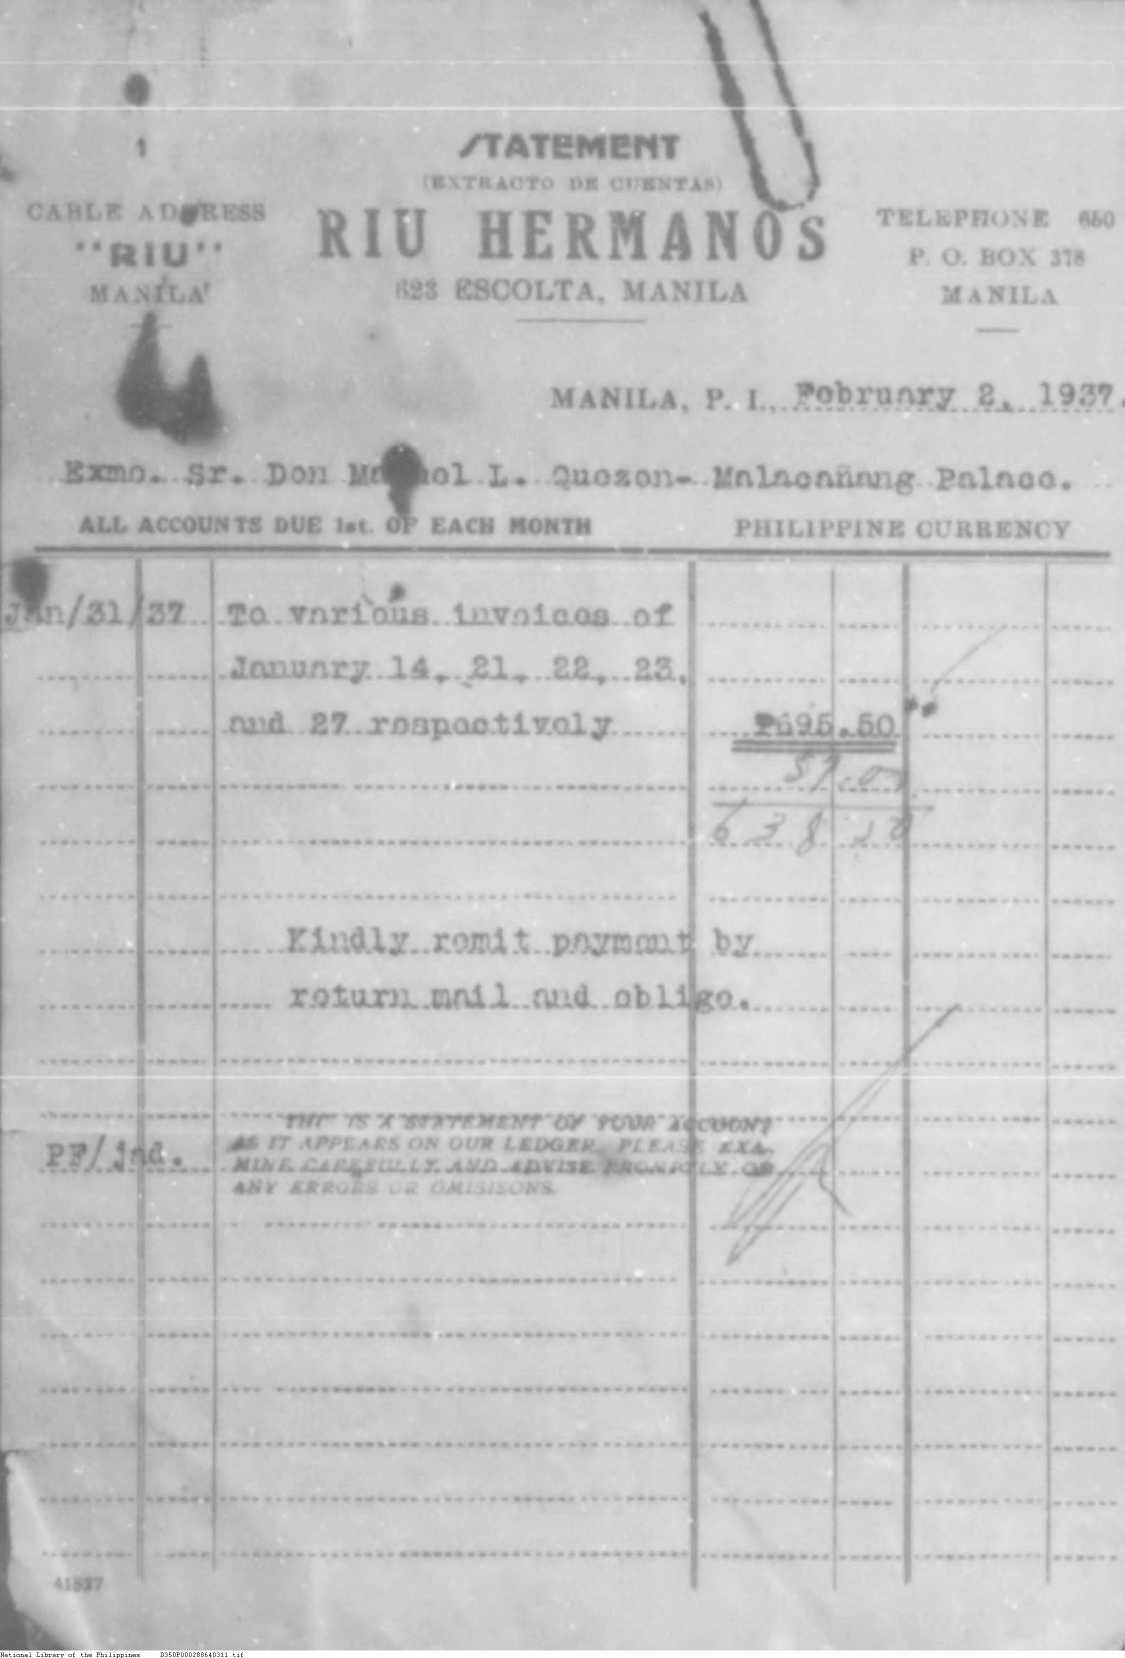 1
STATEMENT
(EXTRACTO DE CUENTAS)
CABLE ADDRESS
"RIU"
MANILA
RIU HERMANOS
623 ESCOLTA, MANILA
TELEPHONE 650
P. O. BOX 378
MANILA
MANILA, P. I., February 2, 1937.
Exmo. Sr. Don Manuel L. Quezon- Malacañang Palace.
ALL ACCOUNTS DUE 1st. OF EACH MONTH PHILIPPINE CURRENCY
Jan/31/37 To various invoices of
January 14, 21, 22, 23,
and 27 respectively ₱695.50
57.00
638 50
Kindly remit payment by
return mail and oblige.
THIS IS A STATEMENT OF YOUR ACCOUNT
AS IT APPEARS ON OUR LEDGER. PLEASE EXA-
PF/jnd. MINE CAREFULLY AND ADVISE PROMPTLY OF
ANY ERRORS OR OMISISONS.
41537
National Library of the Philippines D350P000288640311.tif